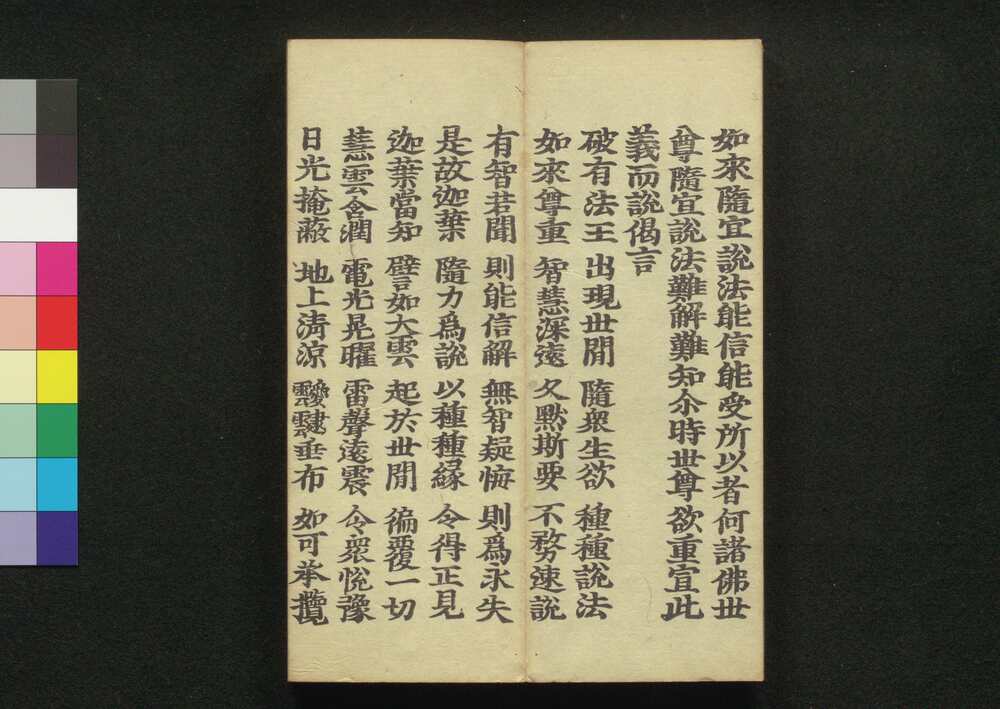 如來隨宜說法能信能受所以者何諸佛世
尊隨宜說法難解難知尒時世尊欲重宣此
義而說偈言
破有法王 出現世間 隨衆生欲 種種說法
如來尊重 智慧深遠 久默斯要 不務速說
有智若聞 則能信解 無智疑悔 則爲永失
是故迦葉 隨力爲說 以種種緣 令得正見
迦葉當知 譬如大雲 起於世間 徧覆一切
慧雲含潤 電光晃曜 雷聲遠震 令衆悅豫
日光掩蔽 地上淸涼 靉靆垂布 如可承攬